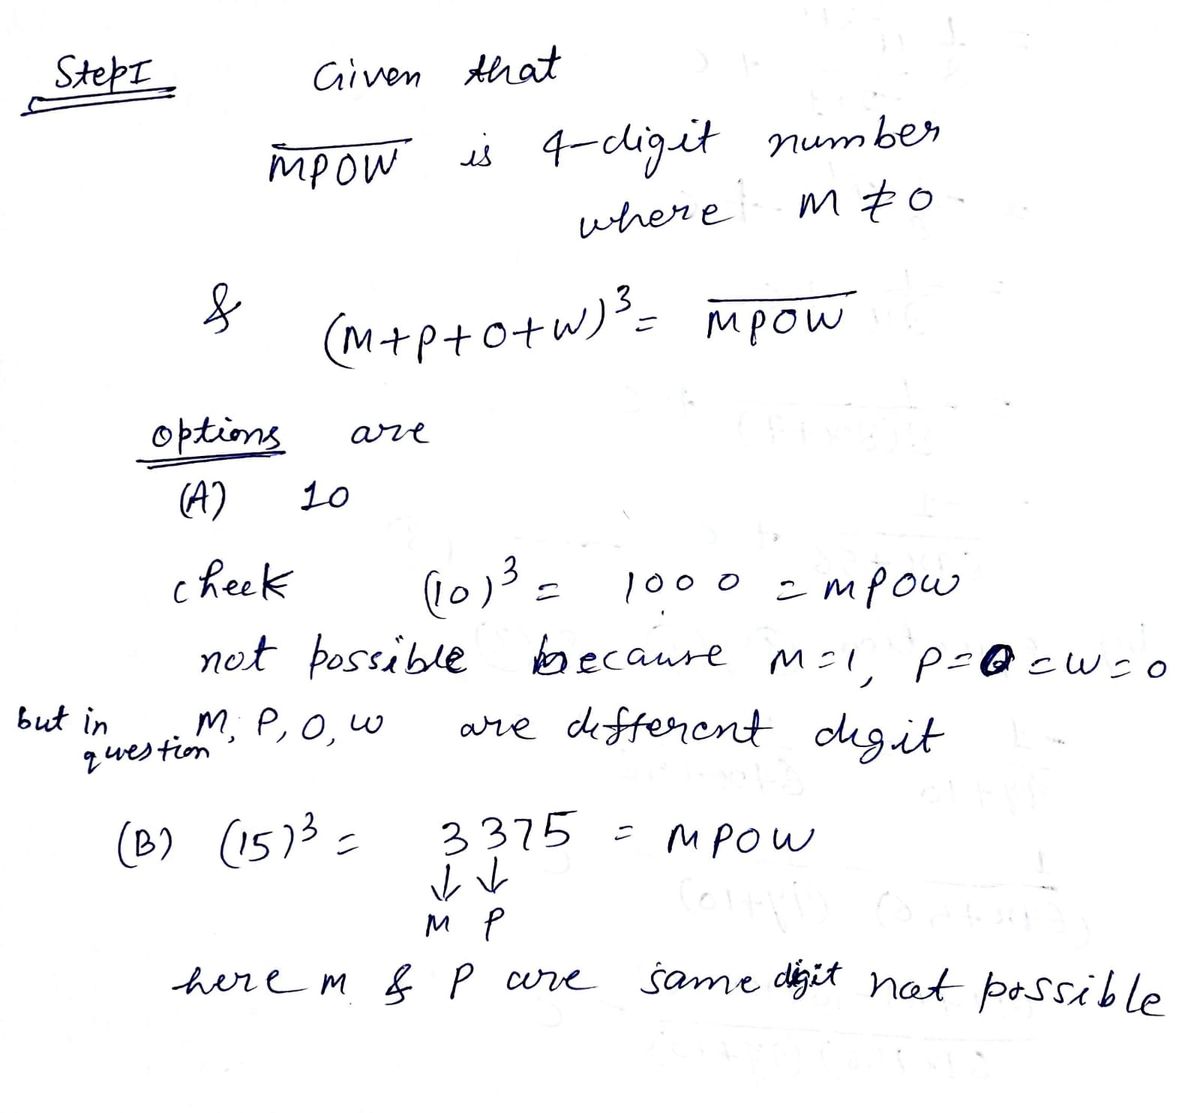 Step I Given that
MPOW is 4-digit number
where M ≠ 0
& (M+P+O+W)³ = MPOW
options are
(A) 10
cheek (10)³ = 1000 = MPOW
not possible because M=1, P=O=W=0
but in question M, P, O, W are different digit
(B) (15)³ = 3375 = MPOW
↓ ↓
M P
here M & P are same digit not possible